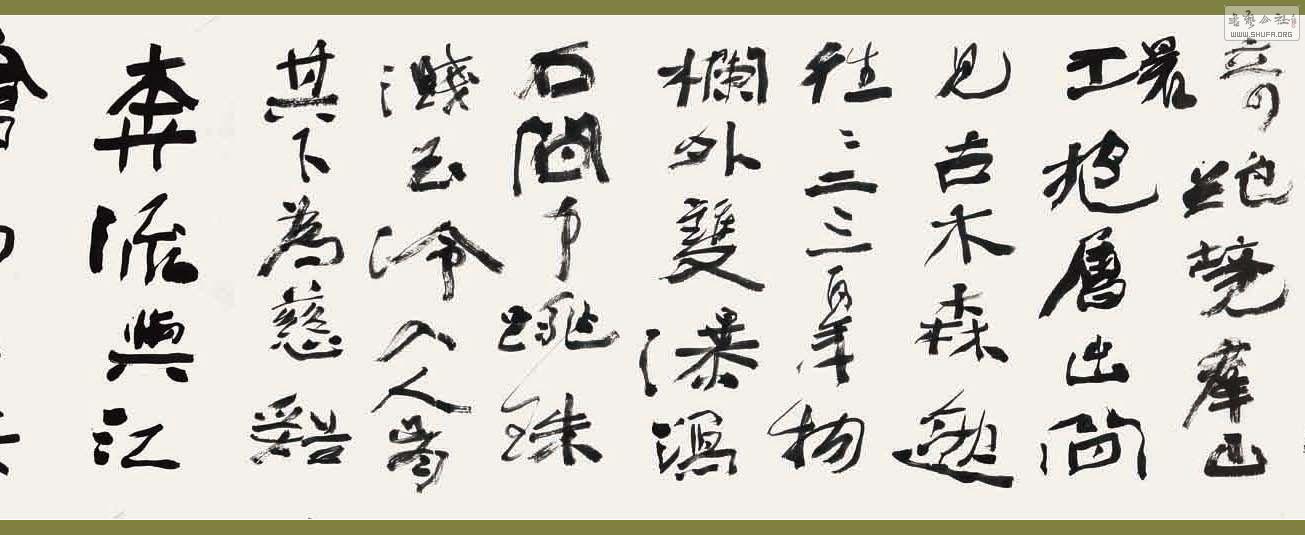 奇絕境群山
環抱層出間
見古木森
往〻二三百年物
欄外雙瀑瀉
石間中跳珠
濺玉冷入人骨
其下為慈谿
奔流與江
會
书艺公社
WWW.SHUFA.ORG